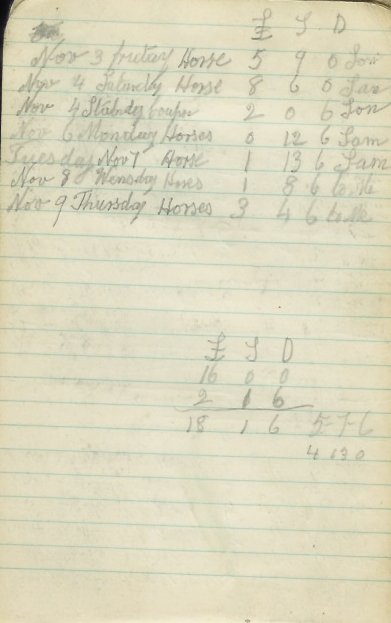 £ S D
Nov 3 friday Horse 5 9 0 Son
Nov 4 Saturday Horse 8 6 0 Son
Nov 4 2 0 6 Son
Nov 6 Monday Horses 0 12 6 Sam
Tuesday Nov 7 Horse 1 13 6 Sam
Nov 8 Wensday Horses 1 8 6
Nov 9 Thursday Horses 3 4 6
£ S D
16 0 0
2 1 6
18 1 6 5-7-6
4 13 0